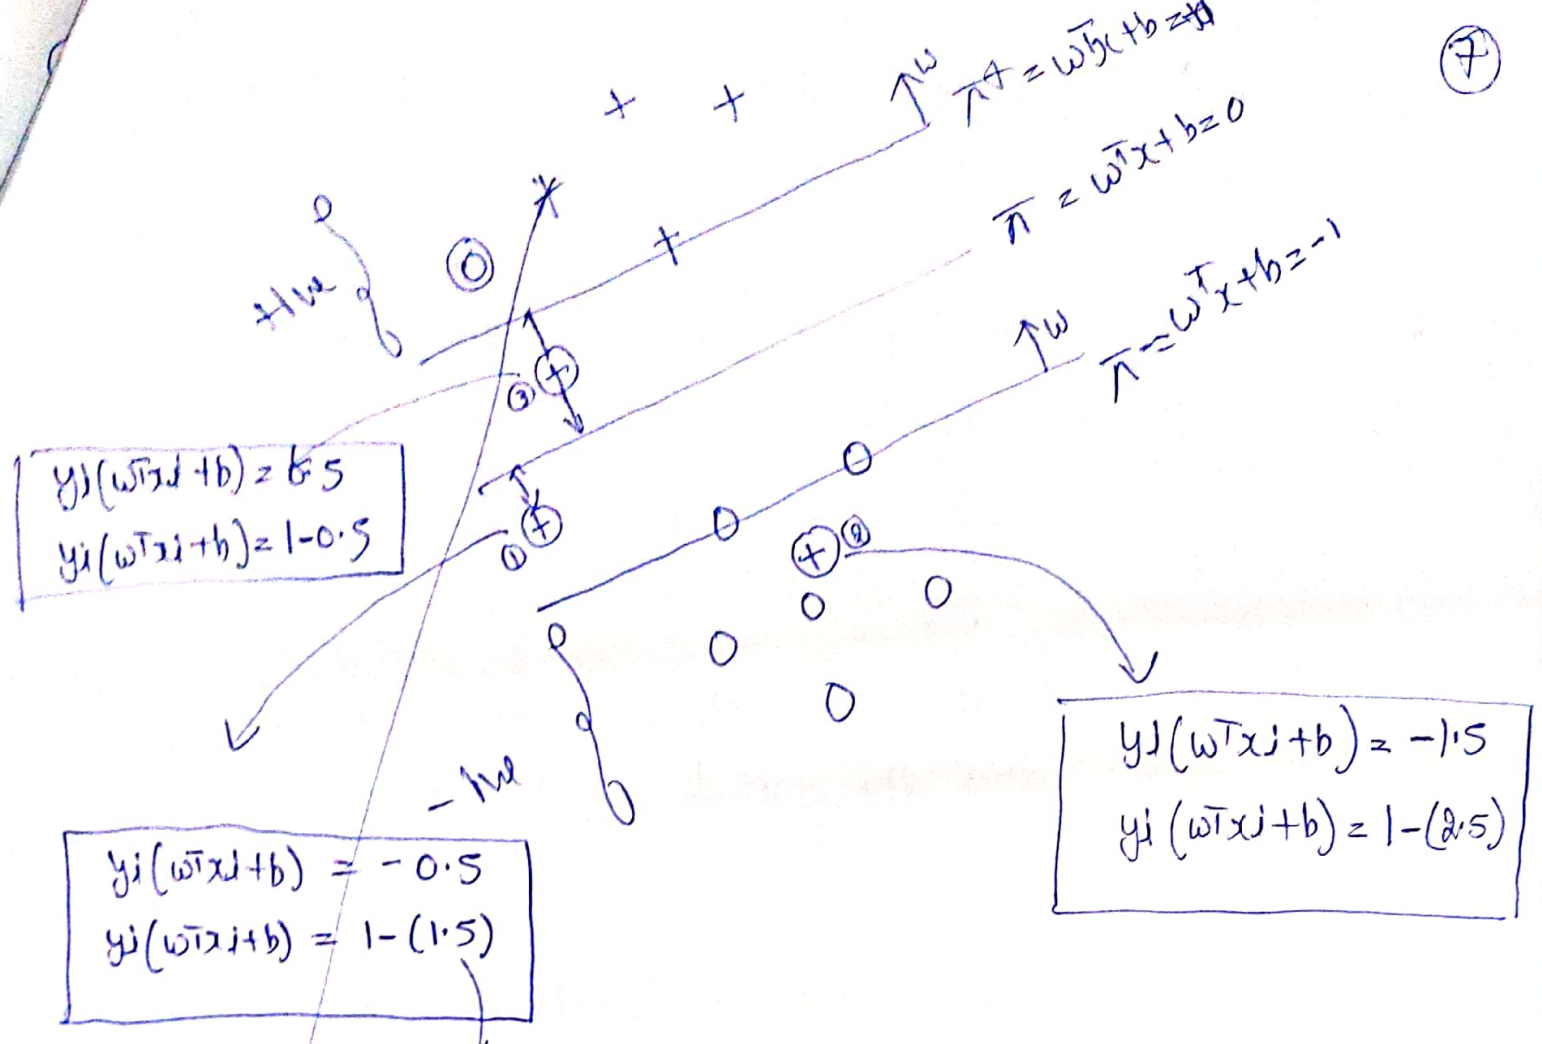 7
w
π+ = wTx+b=+1
π = wTx+b=0
+ve
w
π- = wTx+b=-1
3
yi(wTxi+b) = 0.5
yi(wTxi+b) = 1-0.5
1
2
yi(wTxi+b) = -1.5
yi(wTxi+b) = 1-(2.5)
-ve
yi(wTxi+b) = -0.5
yi(wTxi+b) = 1-(1.5)